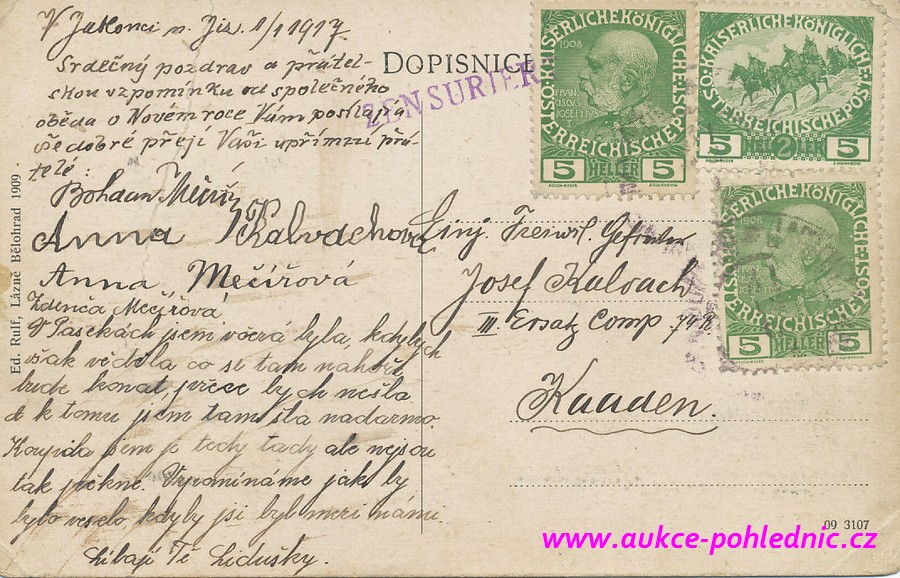 V Jablonci n. Jiz. 1/1 1917
Srdečný pozdrav a přátel-
skou vzpomínku od společného
oběda o Novém roce Vám posílají a
vše dobré přejí Vaši upřímní přá-
telé:
Bohdan Mečíř
Anna Kalvachova
Anna Mečířová
Zdenča Mečířová
V Pasekách jsem včera byla, kdybych
však věděla co se tam nahoře
bude konat, přece bych nešla
A k tomu jsem tam šla nadarmo.
Koupila jsem je tedy tady ale nejsou
tak pěkné. Vzpomínáme jak by
bylo veselo, kdyby jsi byl mezi námi.
Líbají Tě Lidušky.
Ed. Rulf, Lázně Bělohrad 1909.
DOPISNICE
ZENSURIERT
KAISERLICHE KÖNIGLICHE ÖSTERREICHISCHE POST
1908
FRANCISCVS JOSEPH I
5 HELLER 5
KAISERLICHE KÖNIGLICHE ÖSTERREICHISCHE POST
5 HELLER 2 5
KAISERLICHE KÖNIGLICHE ÖSTERREICHISCHE POST
1908
5 HELLER 5
Einj. Freiwil. Gefreiter
Josef Kalvach
III. Ersatz Comp.
Kaaden.
09 3107
www.aukce-pohlednic.cz